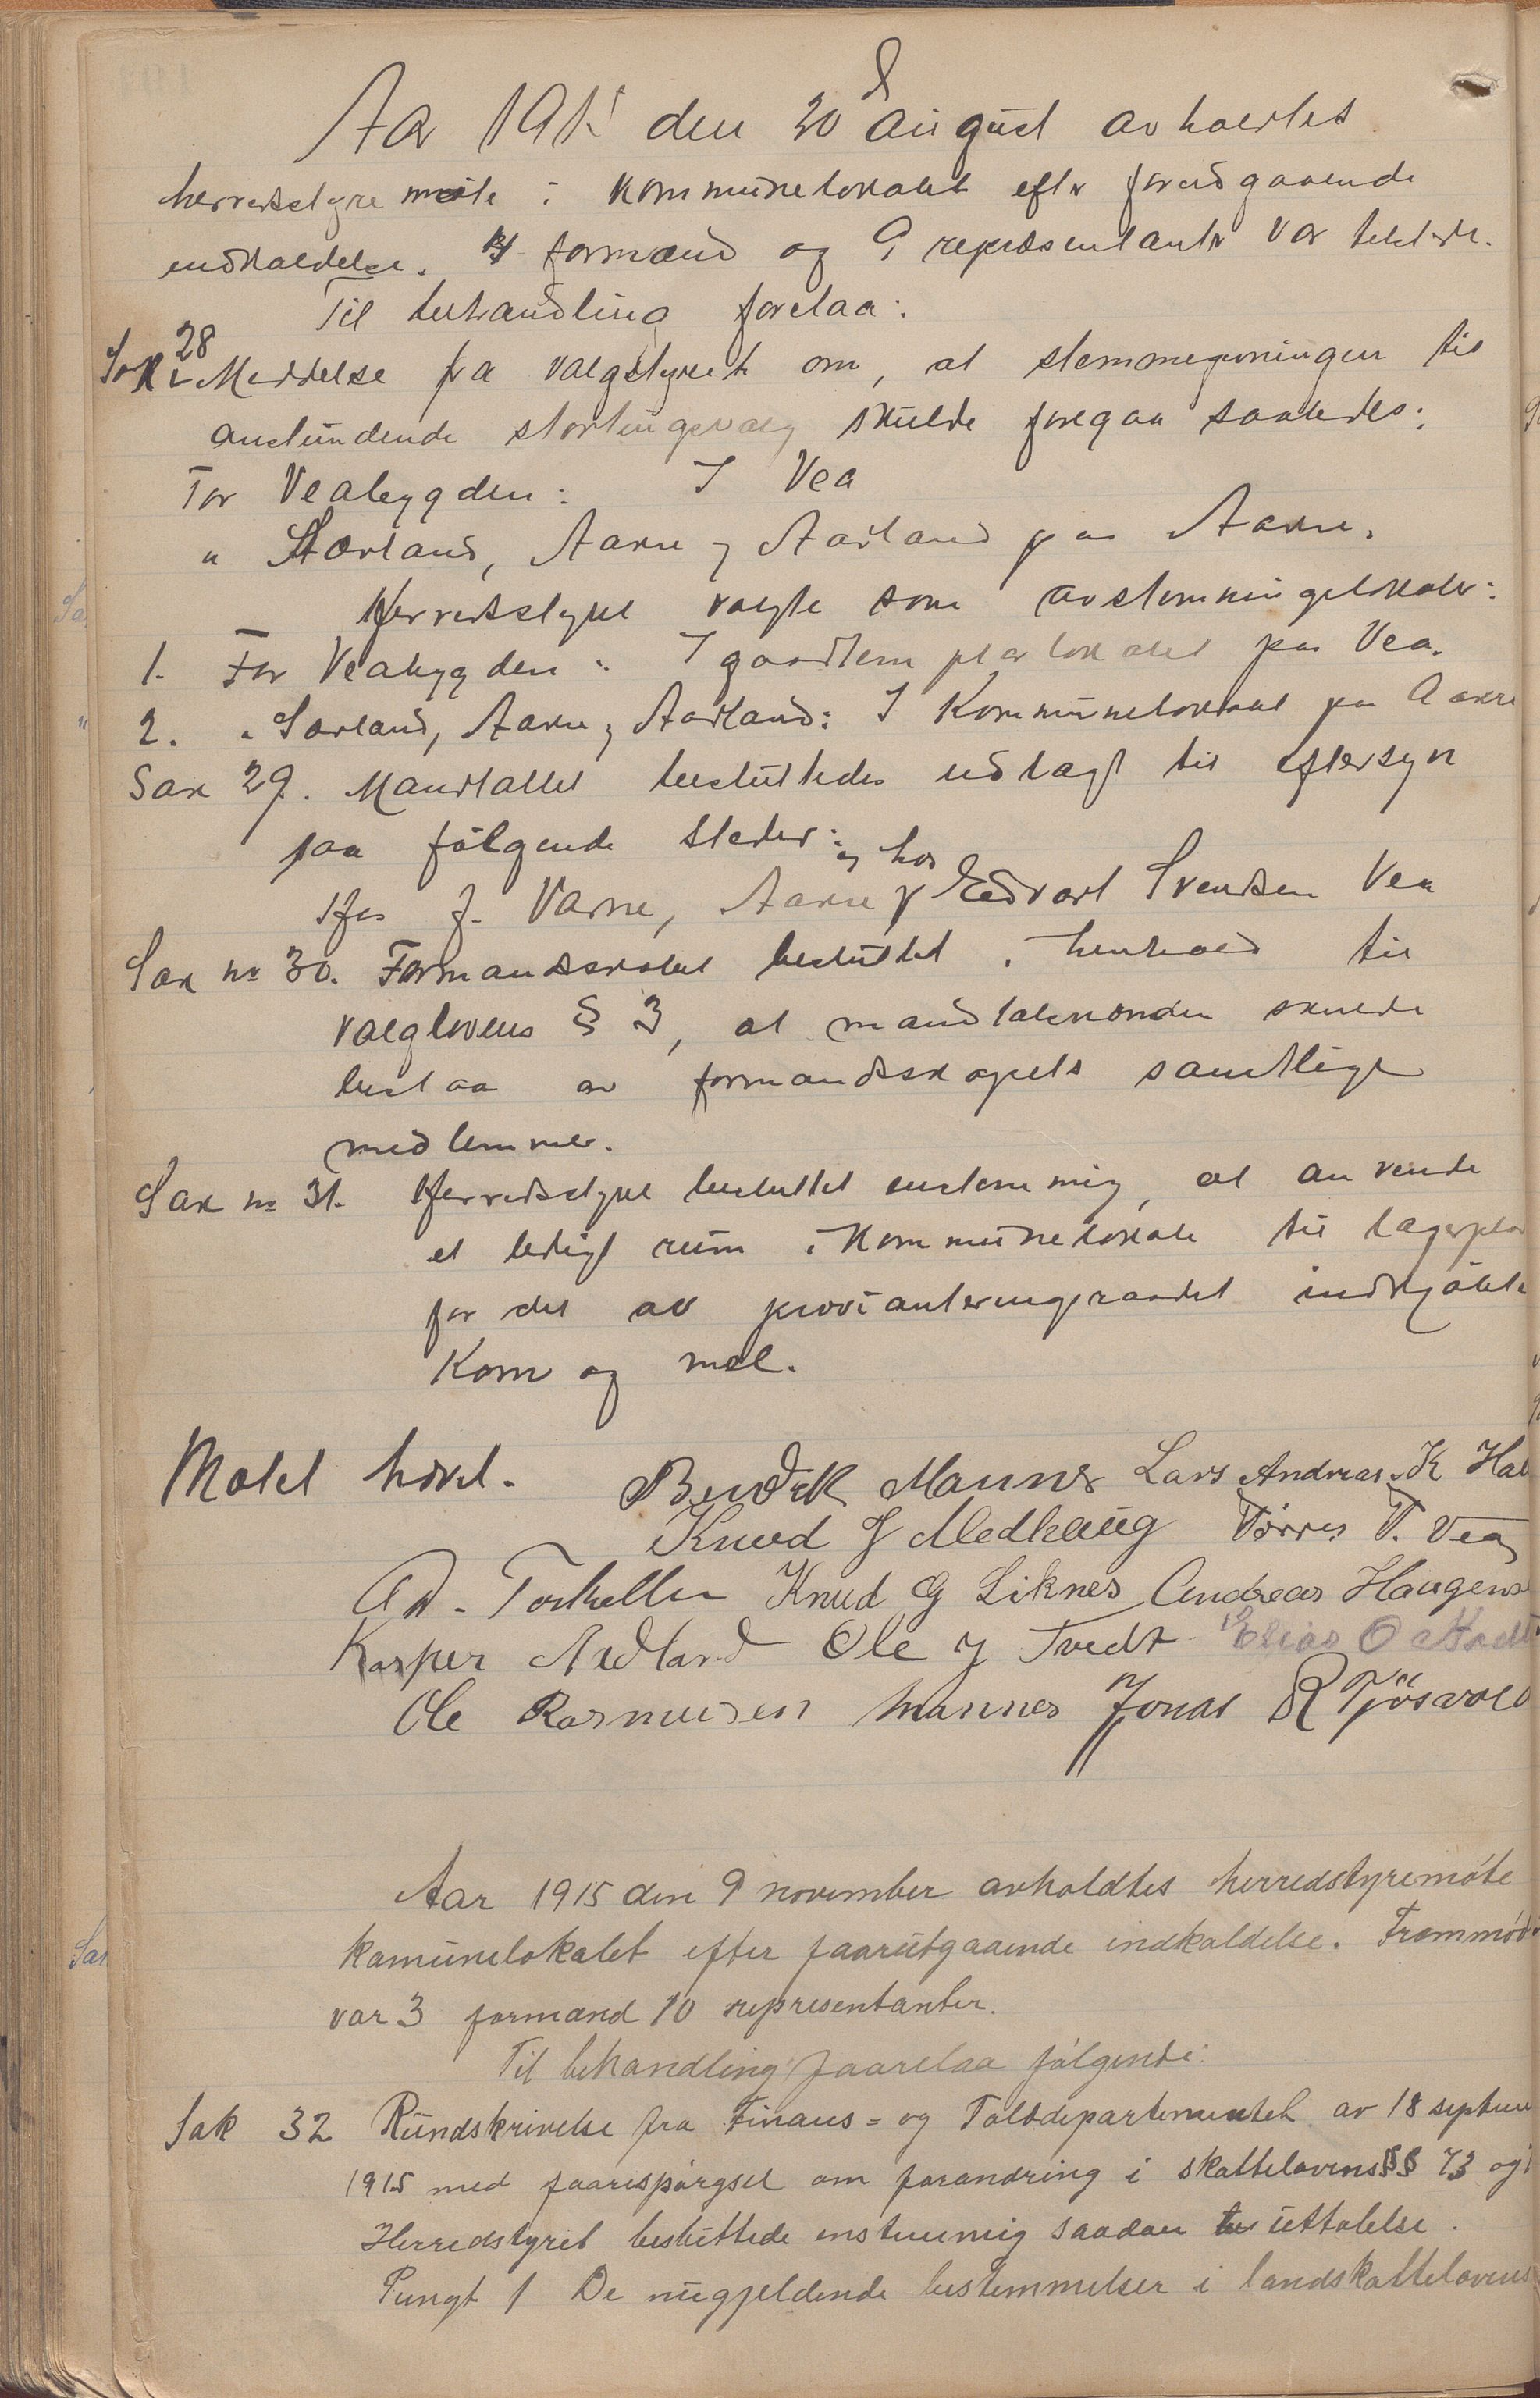 Aar 1915 den 20 august avholdtes
herredstyremøte i kommunelokalet efter forudgaaende
indkaldelse. 3 formænd og 9 repræsentanter var tilstede.
Til behandling forelaa:
Sak 28 Meddelse fra valgstyret om, at stemmegivningen til
anstundende stortingsvalg skulde foregaa saaledes:
For Veabygden: I Vea
" Særland, Aakre og Aadland paa Aakre.
Herredstyret valgte som avstemningslokaler:
1. For Veabygden: I paa Vea.
2. " Særland, Aakre og Aadland: I Kommunelokalet paa Aakre
Sak 29. Mandtallet besluttedes udlagt til eftersyn
paa følgende steder:
Hos J. Varne, Aakre og hos Edvart Svendsen Vea
Sak nr 30. Formandskabet besluttet i henhold til
valglovens § 3, at mandtalsnævnden skulde
bestaa av formandsskapets samtlige
medlemmer.
Sak nr 31. Herredstyret besluttet enstemmig, at anvende
et ledigt rum i Kommunelokale til lagerplas
for det av provianteringsraadet indkjøbte
Korn og mel.
Møtet hævet. Bendik Mannes Lars Andreas K Hal
Knud J Medhaug Tørres T. Vea
Ad. Torkellsen Knud G Liknes Andreas Haugen
Kasper Nedland Ole J Tvedt Elias O
Ole Rasmussen Mannes Jonas R Tjøsvold
Aar 1915 den 9 november avholdtes herredstyremøte
kamunelokalet efter faarutgaaende indkaldelse. Frammød
var 3 formænd 10 representanter.
Til behandling faarelaa følgende:
Sak 32 Rundskrivelse fra Finans- og Tolddepartementet av 18 septem
1915 med faarespørgsel om forandring i skattelovens §§ 73 og
Herredstyret besluttede enstemmig saadan uttalelse.
Pungt 1 De nugjeldende bestemmelser i landskattelovens